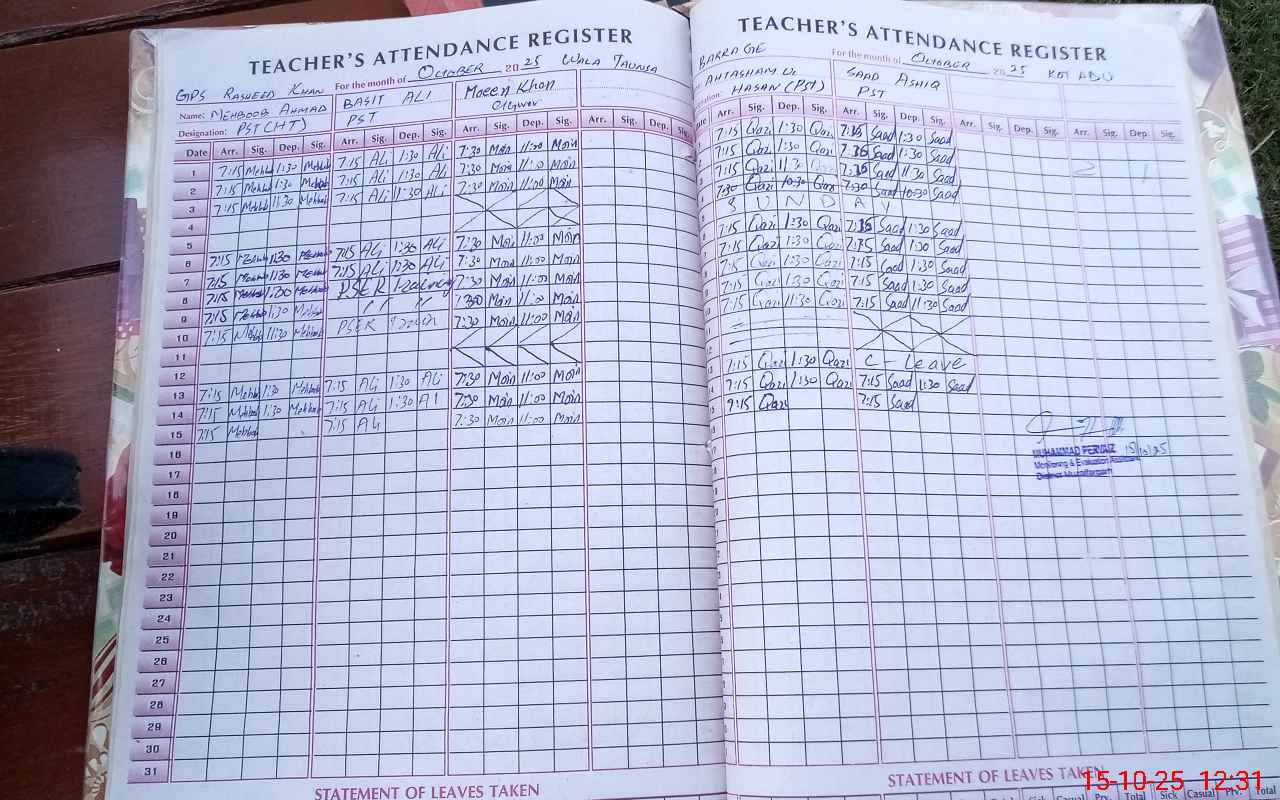 TEACHER'S ATTENDANCE REGISTER
For the month of October 2025 WALA TAUNSA
GPS RASHEED KHAN
Name: MEHBOOB AHMAD BASIT ALI Moeen Khan
Designation: PST(HT) PST
Date Arr. Sig. Dep. Sig. Arr. Sig. Dep. Sig. Arr. Sig. Dep. Sig. Arr. Sig. Dep. Sig.
1 7:15 Mehb 1:30 Mehbb 7:15 Ali 1:30 Ali 7:30 Moin 11:00 Moin
2 7:15 Mehb 1:30 Mehb 7:15 Ali 1:30 Ali 7:30 Moin 11:00 Moin
3 7:15 Mehbb 11:30 Mehbb 7:15 Ali 11:30 Ali 7:30 Moin 11:00 Moin
4
5
6 7:15 1:30 7:15 Ali 1:30 Ali 7:30 Moin 11:00 Moin
7 7:15 1:30 7:15 Ali 1:30 Ali 7:30 Moin 11:00 Moin
8 7:15 PSER 7:30 Moin 11:00 Moin
9 7:15 1:30 " " " 7:30 Moin 11:00 Moin
10 7:15 11:30 PSER 7:30 Moin 11:00 Moin
11
12
13 7:15 Mehbb 1:30 Mehbb 7:15 Ali 1:30 Ali 7:30 Moin 11:00 Moin
14 7:15 Mehbb 1:30 Mehbb 7:15 Ali 1:30 Ali 7:30 Moin 11:00 Moin
15 7:15 Mehbb 7:15 Ali 7:30 Moin 11:00 Moin
16
17
18
19
20
21
22
23
24
25
26
27
28
29
30
31
STATEMENT OF LEAVES TAKEN
TEACHER'S ATTENDANCE REGISTER
BARRAGE For the month of October 2025 KOT ADU
AHTASHAM UL SAAD ASHIQ
HASAN (PST) PST
Arr. Sig. Dep. Sig. Arr. Sig. Dep. Sig. Arr. Sig. Dep. Sig. Arr. Sig. Dep. Sig.
7:15 Qazi 1:30 Qazi 7:15 Saad 1:30 Saad
7:15 Qazi 1:30 Qazi 7:15 Saad 1:30 Saad
7:15 Qazi 11:30 7:15 Saad 11:30 Saad
7:30 Qazi 10:30 Qazi 7:30 Saad 10:30 Saad
S U N D A Y
7:15 Qazi 1:30 Qazi 7:15 Saad 1:30 Saad
7:15 Qazi 1:30 Qazi 7:15 Saad 1:30 Saad
7:15 Qazi 1:30 Qazi 7:15 Saad 1:30 Saad
7:15 Qazi 1:30 Qazi 7:15 Saad 1:30 Saad
7:15 Qazi 11:30 Qazi 7:15 Saad 11:30 Saad
7:15 Qazi 1:30 Qazi C - Leave
7:15 Qazi 1:30 Qazi 7:15 Saad 1:30 Saad
7:15 Qazi 7:15 Saad
MUHAMMAD PERVAIZ 15/10/25
Monitoring & Evaluation Assistant
District Muzaffargarh
STATEMENT OF LEAVES TAKEN
Sick Casual Prv. Total Sick Casual Prv. Total
15-10-25 12:31